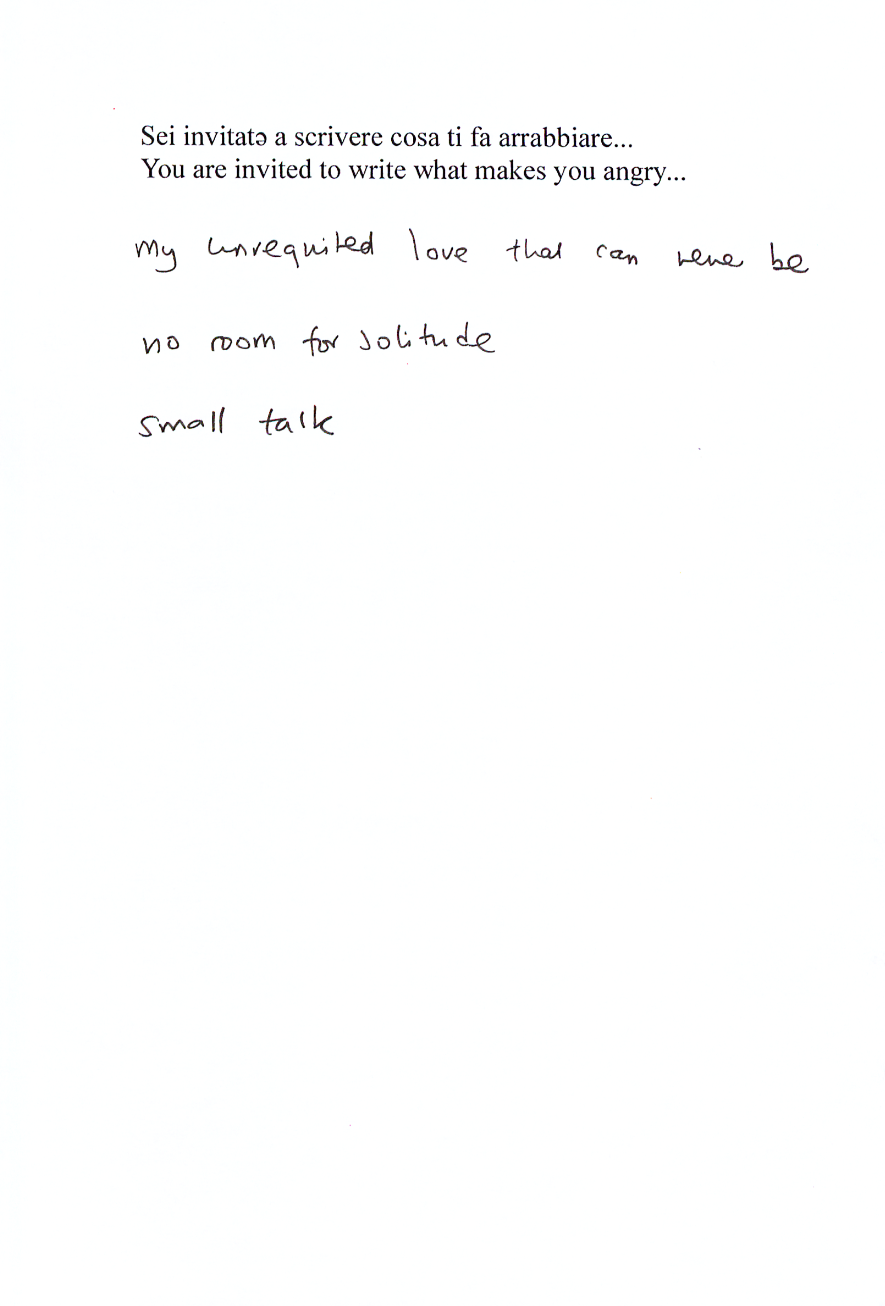 Sei invitatə a scrivere cosa ti fa arrabbiare...
You are invited to write what makes you angry...
my unrequited love that can never be
no room for solitude
small talk